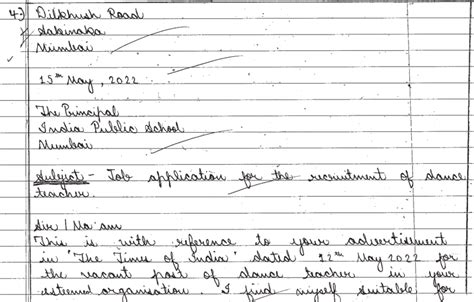 4) Dilkhush Road
Sakinaka
Mumbai
15th May, 2022
The Principal
India Public School
Mumbai
Subject - Job application for the recruitment of dance
teacher.
Sir / Ma'am
This is with reference to your advertisement
in 'The Times of India' dated 12th May 2022 for
the vacant post of dance teacher in your
esteemed organisation. I find myself suitable for